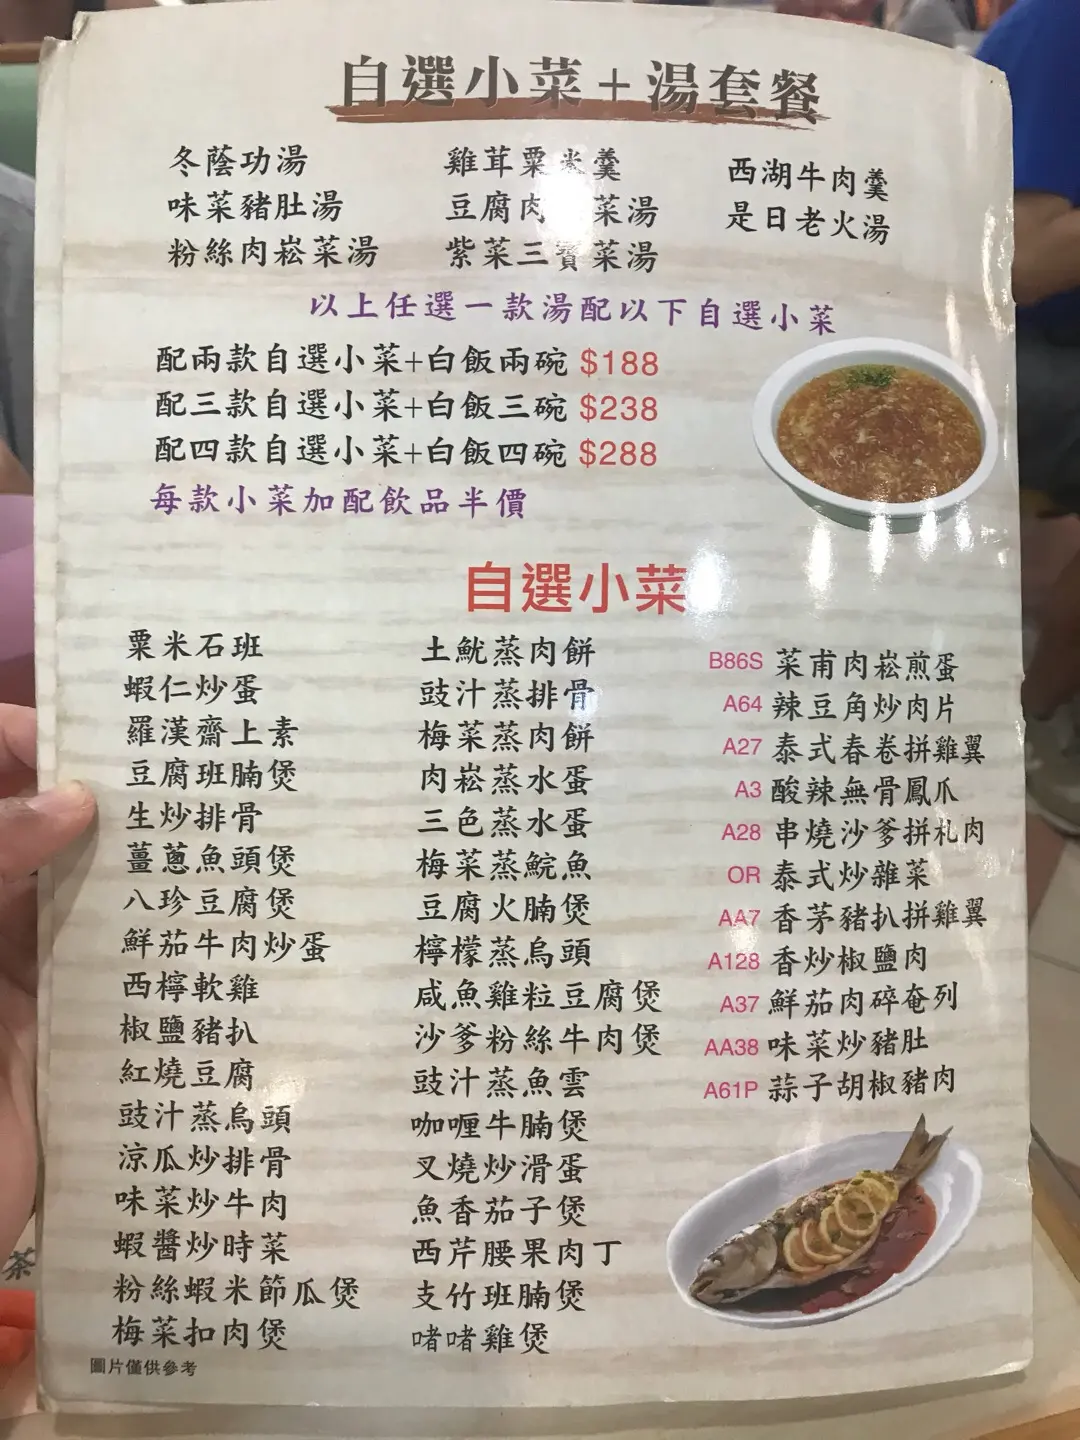 自選小菜+湯套餐
冬蔭功湯
味菜豬肚湯
粉絲肉崧菜湯
雞茸粟米羹
豆腐肉菜湯
紫菜三寶菜湯
西湖牛肉羹
是日老火湯
以上任選一款湯配以下自選小菜
配兩款自選小菜+白飯兩碗 $188
配三款自選小菜+白飯三碗 $238
配四款自選小菜+白飯四碗 $288
每款小菜加配飲品半價
自選小菜
粟米石班
蝦仁炒蛋
羅漢齋上素
豆腐班腩煲
生炒排骨
薑蔥魚頭煲
八珍豆腐煲
鮮茄牛肉炒蛋
西檸軟雞
椒鹽豬扒
紅燒豆腐
豉汁蒸烏頭
涼瓜炒排骨
味菜炒牛肉
蝦醬炒時菜
粉絲蝦米節瓜煲
梅菜扣肉煲
土魷蒸肉餅
豉汁蒸排骨
梅菜蒸肉餅
肉崧蒸水蛋
三色蒸水蛋
梅菜蒸鯇魚
豆腐火腩煲
檸檬蒸烏頭
咸魚雞粒豆腐煲
沙爹粉絲牛肉煲
豉汁蒸魚雲
咖喱牛腩煲
叉燒炒滑蛋
魚香茄子煲
西芹腰果肉丁
支竹班腩煲
啫啫雞煲
B86S 菜甫肉崧煎蛋
A64 辣豆角炒肉片
A27 泰式春卷拼雞翼
A3 酸辣無骨鳳爪
A28 串燒沙爹拼札肉
OR 泰式炒雜菜
AA7 香茅豬扒拼雞翼
A128 香炒椒鹽肉
A37 鮮茄肉碎奄列
AA38 味菜炒豬肚
A61P 蒜子胡椒豬肉
圖片僅供參考
茶